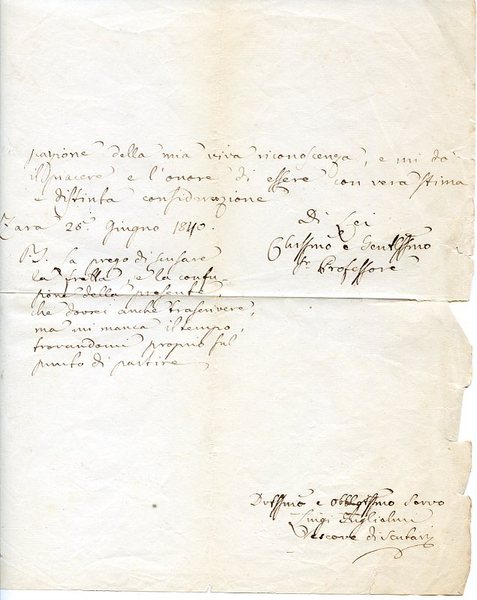 pazione della mia viva riconoscenza, e mi dò
il piacere e l'onore di essere con vera stima
e distinta considerazione
Zara 26. Giugno 1840.
Di Lei
Chissimo e Gentilssimo
Sr. Professore
P.S. La prego di scusare
la fretta, e la confu-
sione della presente,
che dovrei anche trascrivere,
ma mi manca il tempo,
trovandomi proprio sul
punto di partire
Devssmo e Obbligssmo Servo
Luigi Guglielmi
Vescovo di Scutari